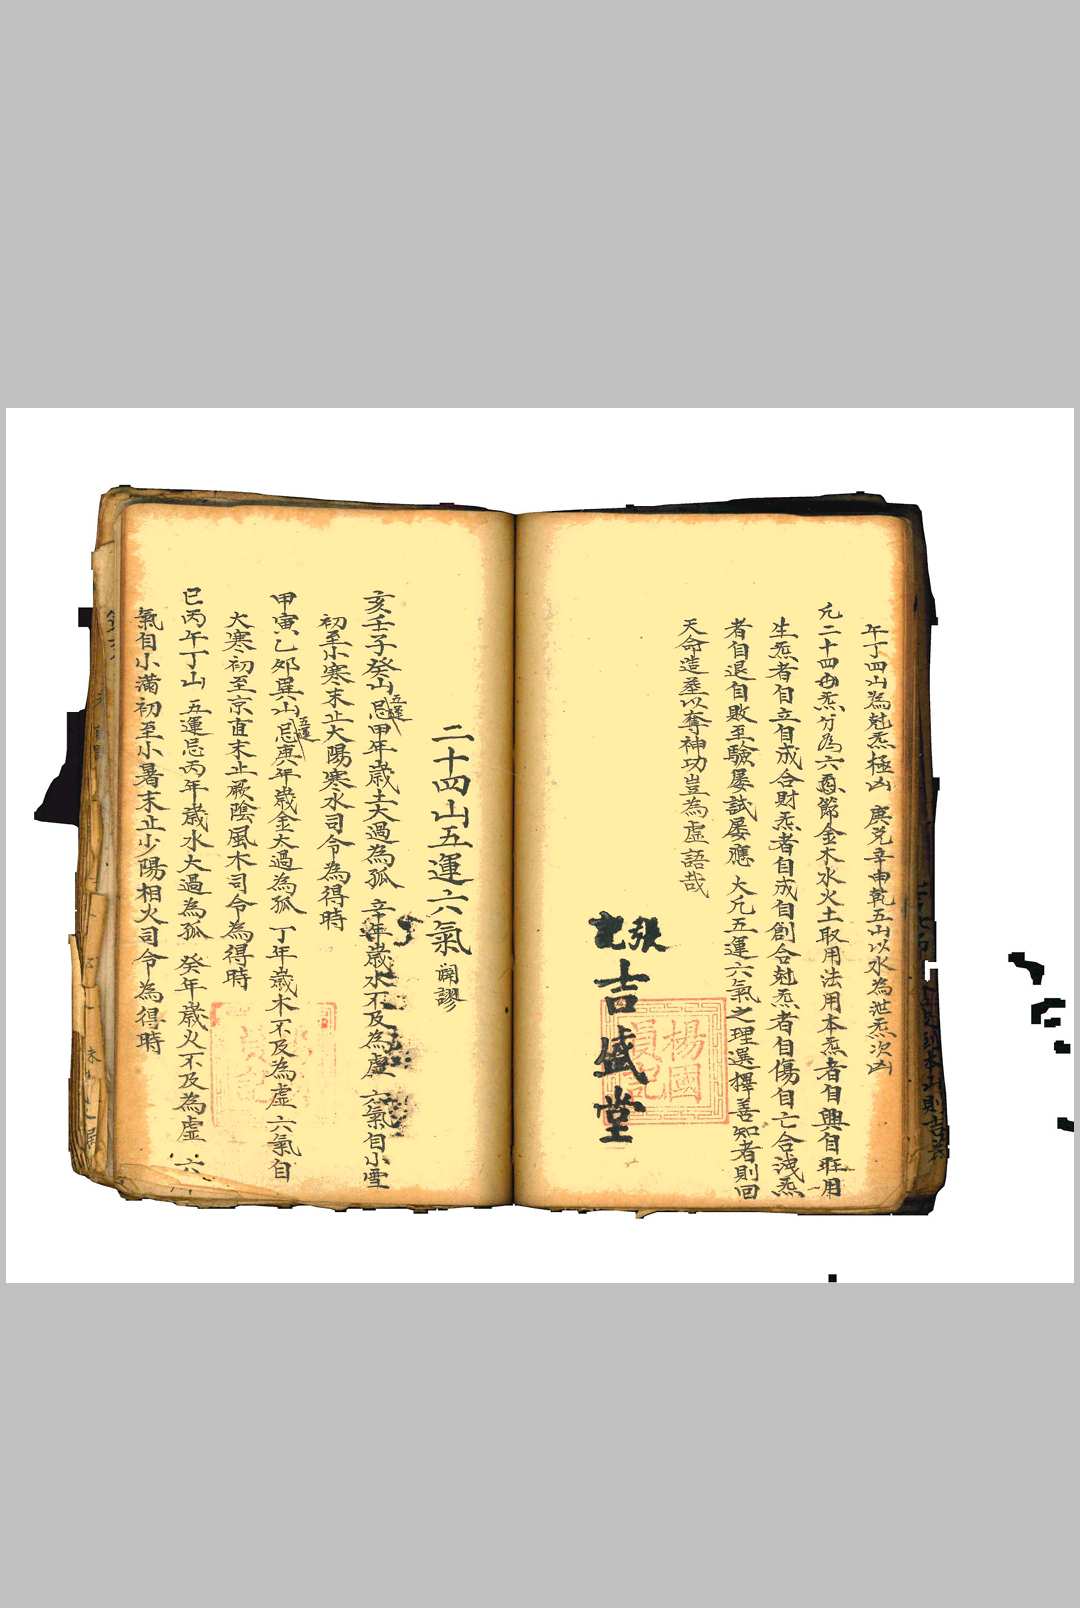 午丁四山為尅炁極凶 庚兌辛申乾五山以水為泄炁次凶
凡二十四山炁分為六節金木水火土取用法用本炁者自興自旺用
生炁者自立自成合財炁者自成自創合尅炁者自傷自亡合洩炁
者自退自敗至驗屡試屡應 大凡五運六氣之理選擇善知者則回
天命造塟以奪神功豈為虛語哉
張記
吉盛堂
楊國貞記
二十四山五運六氣闢謬
亥壬子癸山五運忌甲年歲土大過為孤 辛年歲水不及為虛 六氣自小雪
初至小寒末止大陽寒水司令為得時
甲寅乙夘巽山五運忌庚年歲金大過為孤 丁年歲木不及為虛 六氣自
大寒初至京直末止厥陰風木司令為得時
巳丙午丁山 五運忌丙年歲水大過為孤 癸年歲火不及為虛 六
氣自小滿初至小暑末止少陽相火司令為得時